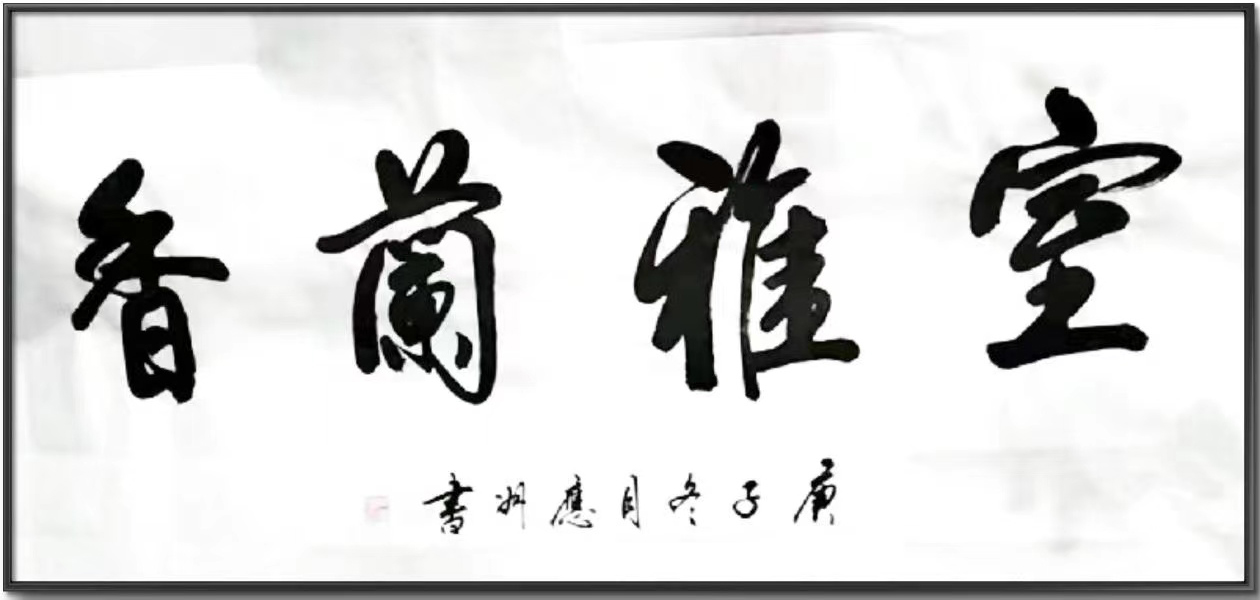 室雅蘭香
庚子冬月應州書